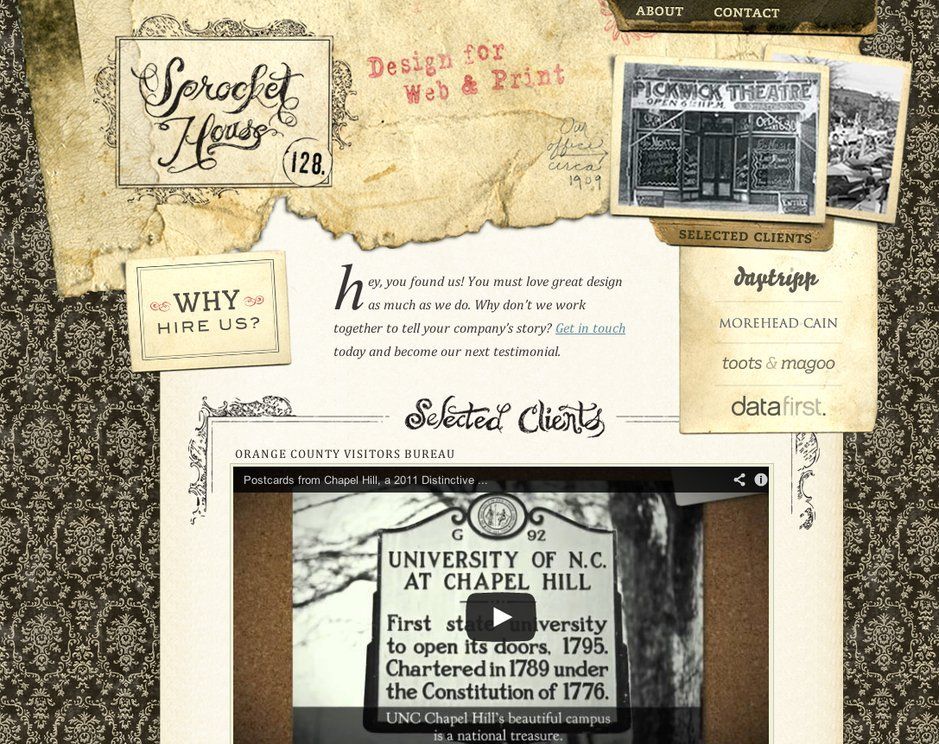 ABOUT CONTACT
Sprocket
House
128.
Design for
Web & Print
Our
office
circa
1909
PICKWICK THEATRE
OPEN 6:11 P.M.
SELECTED CLIENTS
daytripp
MOREHEAD CAIN
toots & magoo
datafirst.
WHY
HIRE US?
hey, you found us! You must love great design
as much as we do. Why don't we work
together to tell your company's story? Get in touch
today and become our next testimonial.
Selected Clients
ORANGE COUNTY VISITORS BUREAU
Postcards from Chapel Hill, a 2011 Distinctive ...
G 92
UNIVERSITY OF N.C.
AT CHAPEL HILL
First state university
to open its doors, 1795.
Chartered in 1789 under
the Constitution of 1776.
UNC Chapel Hill's beautiful campus
is a national treasure.